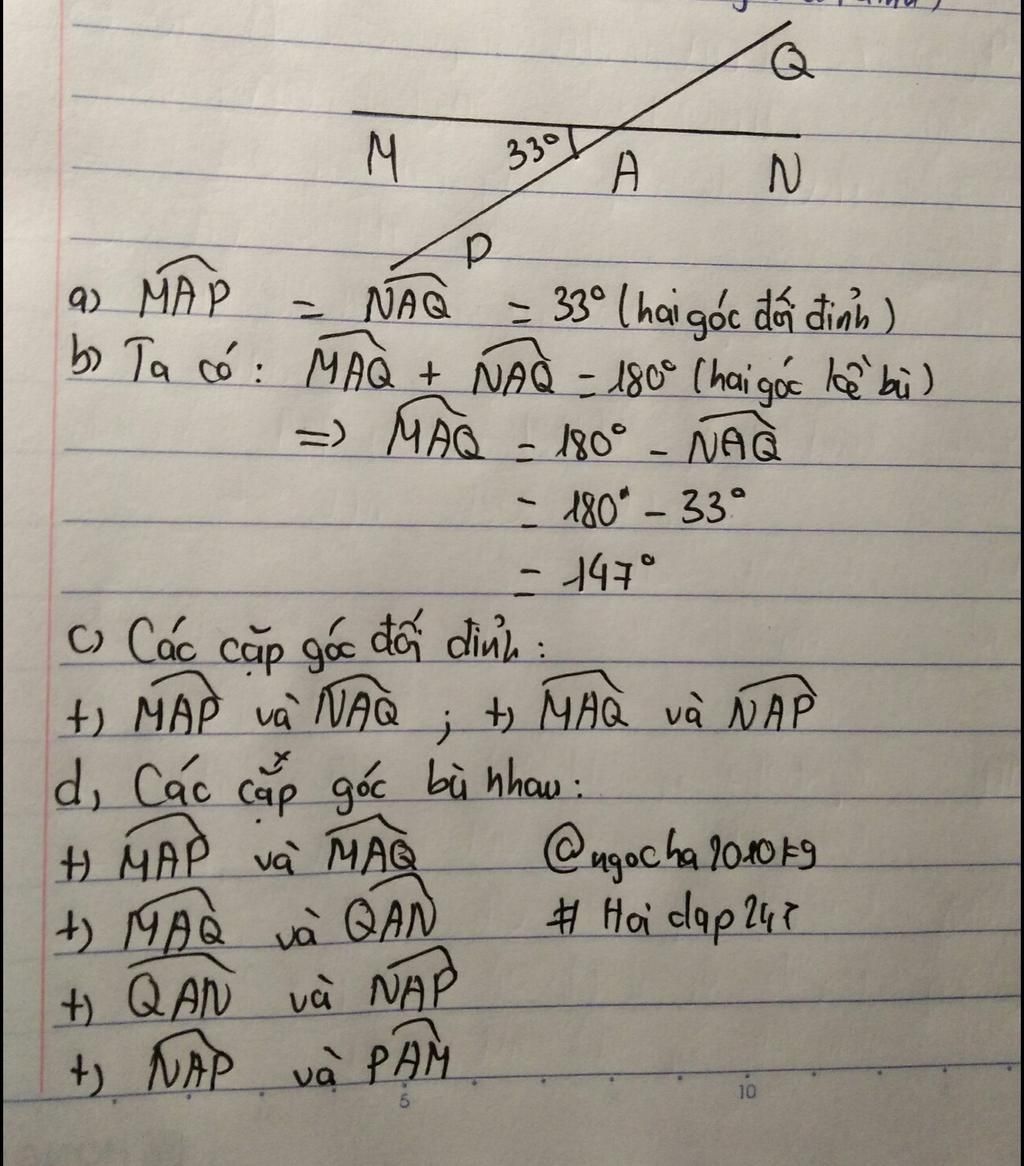 Q
M 33° A N
P
a) MAP = NAQ = 33° (hai góc đối đỉnh)
b) Ta có: MAQ + NAQ = 180° (hai góc kề bù)
=> MAQ = 180° - NAQ
= 180° - 33°
= 147°
c) Các cặp góc đối đỉnh:
+) MAP và NAQ ; +) MAQ và NAP
d, Các cặp góc bù nhau:
+) MAP và MAQ @ngocha2010kg
+) MAQ và QAN # Hoi dap 247
+) QAN và NAP
+) NAP và PAM
5 10